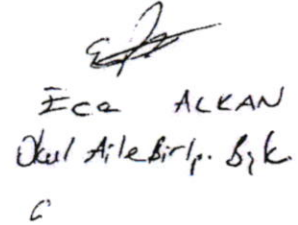 Ece ALKAN
Okul Aile Birlğ. Bşk.